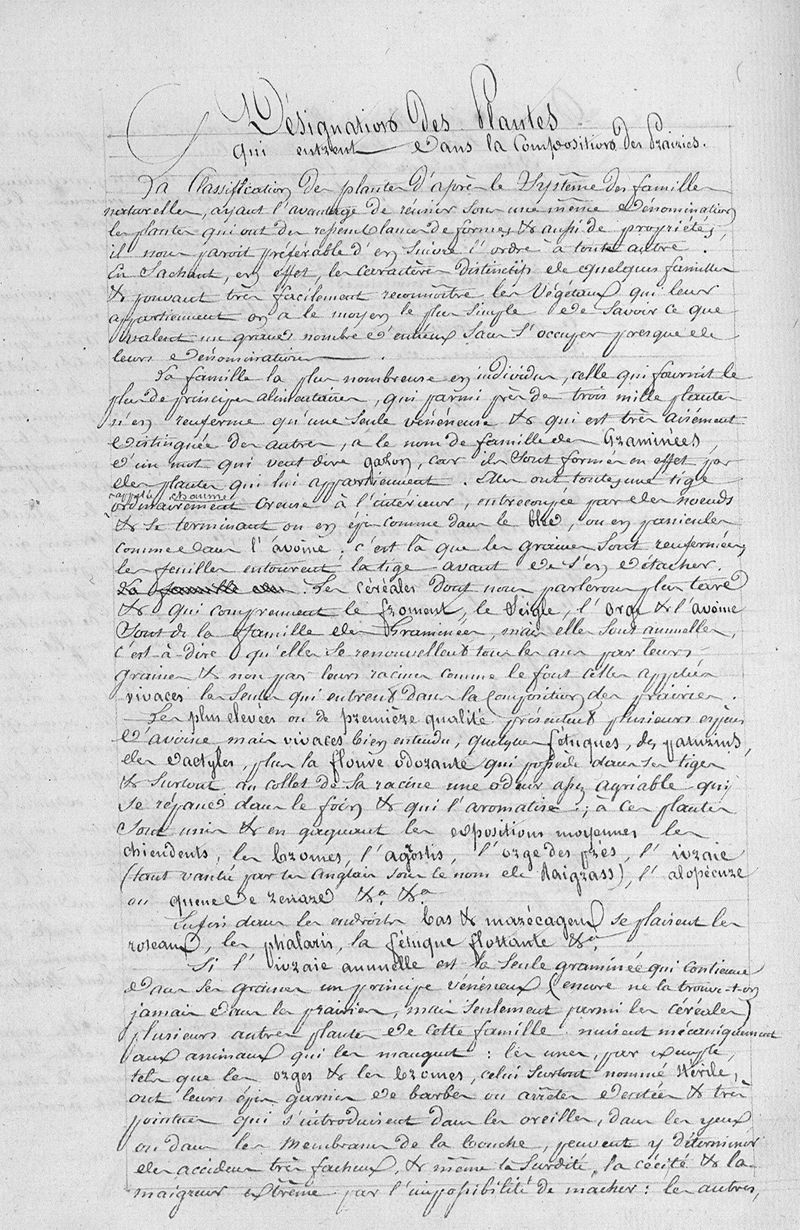 Désignation des Plantes
qui entrent dans la Composition des Prairies.
La Classification des plantes d'après le Système des familles
naturelles, ayant l'avantage de réunir sous une même dénomination
les plantes qui ont des ressemblances de formes & aussi de propriétés,
il nous paroit préférable d'en suivre l'ordre à toute autre.
En sachant, en effet, les caractères distinctifs de quelques familles
& pouvant très facilement reconnoitre les Végétaux qui leur
appartiennent on a le moyen le plus simple de savoir ce que
valent un grand nombre d'entreux sans s'occuper presque de
leurs dénominations.
La famille la plus nombreuse en individus, celle qui fournit le
plus de principes alimentaires, qui parmi près de trois mille plantes
n'en renferme qu'une seule vénéneuse & qui est très aisément
distinguée des autres, a le nom de famille des Graminées,
d'un mot qui veut dire gazon, car ils sont formés en effet par
des plantes qui lui appartiennent. Elles ont toutes une tige
appelée chaume
ordinairement creuse à l'intérieur, entrecoupée par des noeuds
& se terminant ou en épis comme dans le bled, ou en panicules
comme dans l'avoine. c'est là que les graines sont renfermées,
les feuilles entourent la tige avant de s'en détacher.
La famille des. Les céréales dont nous parlerons plus tard
& qui comprennent le froment, le Seigle, l'orge & l'avoine
sont de la famille des Graminées, mais elles sont annuelles,
c'est-à-dire qu'elles se renouvellent tous les ans par leurs
graines & non par leurs racines comme le font celles appelées
vivaces les seules qui entrent dans la Composition des prairies.
Les plus élevées ou de première qualité présentent plusieurs espèces
d'avoine mais vivaces bien entendu, quelques fétuques, des paturins,
des dactyles, plus la flouve odorante qui possède dans ses tiges
& surtout au collet de sa racine une odeur assez agréable qui
se répand dans le foin & qui l'aromatise; à ces plantes
sont unis & en gagnant les expositions moyennes les
chiendents, les bromes, l'agostis, l'orge des prés, l'ivraie
(tant vantée par les Anglais sous le nom de Raigrass), l'alopécure
ou queue de renard &a. &a.
Enfin dans les endroits bas & marécageux se plaisent les
roseaux, les phalaris, la fétuque flottante &a.
Si l'ivraie annuelle est la seule graminée qui contienne
dans ses graines un principe vénéneux (encore ne la trouve-t-on
jamais dans les prairies, mais seulement parmi les céréales)
plusieurs autres plantes de cette famille nuisent mécaniquement
aux animaux qui les mangent: les unes, par exemple,
tels que les orges & les bromes, celui surtout nommé Stérile,
ont leurs épis garnis de barbes ou arrêtes dentées & très
pointues qui s'introduisent dans les oreilles, dans les yeux
ou dans les membranes de la bouche, peuvent y déterminer
des accidens très facheux, & même la surdité, la cécité & la
maigreur extrême par l'impossibilité de macher: les autres,